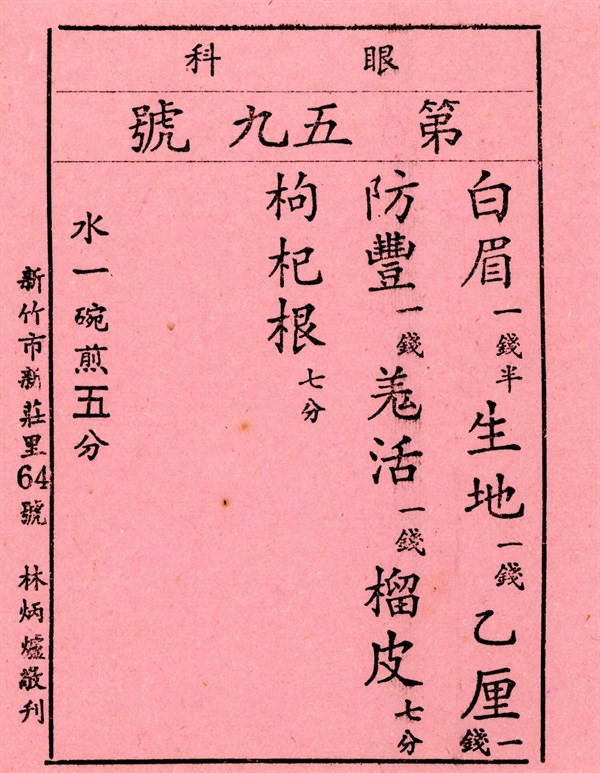 眼科
第五九號
白眉一錢半 生地一錢 乙厘一錢
防豐一錢 羗活一錢 榴皮七分
枸杞根七分
水一碗煎五分
新竹市新莊里64號 林炳爐敬刊